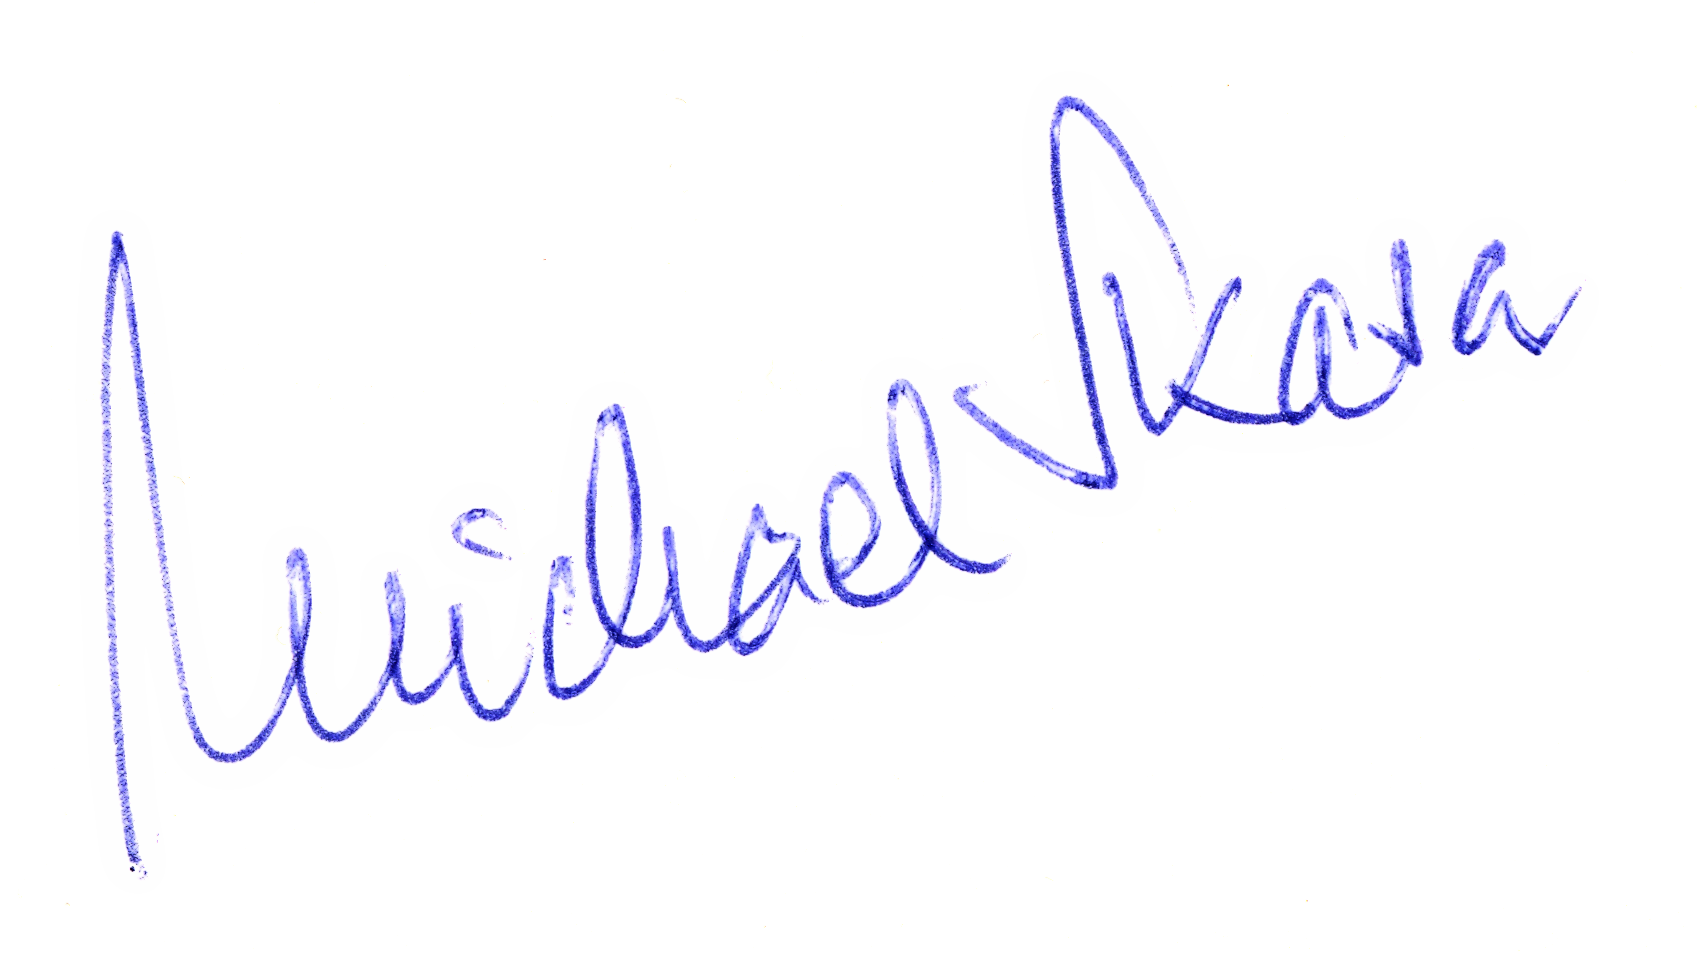 Michael Skasa